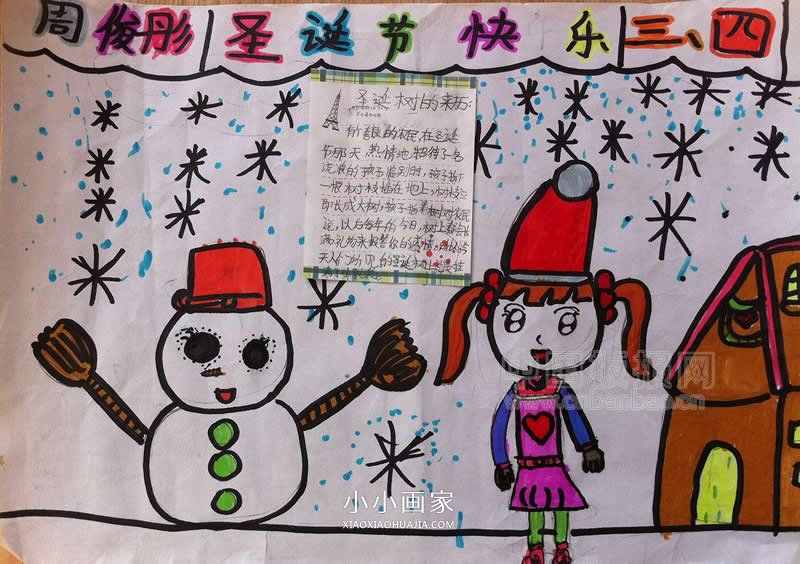 周俊彤 圣诞节快乐 三、四
圣诞树的来历:
France
有一个农民,在圣诞
节那天热情地招待了一名
流浪的孩子临别时,孩子折下
一根树枝插在地上,树枝
即长成大树,孩子指着树对农民
说,以后每年的今日,树上都会长
满礼物来报答你的盛情。所以今
天人们所见的圣诞树上总挂
中国板报网
www.cnbanbao.cn
小小画家
XIAOXIAOHUAJIA.COM